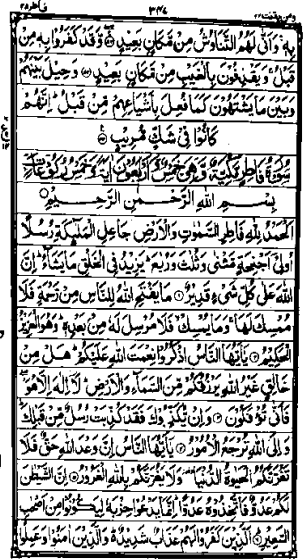 فاطر ٣٥
٣٤٧
ومن يقنت ٢٢
بِهٖ وَاَنّٰى لَهُمُ التَّنَاوُشُ مِنْ مَّكَانٍ بَعِيْدٍ وَّقَدْ كَفَرُوْا بِهٖ مِنْ
قَبْلُ وَيَقْذِفُوْنَ بِالْغَيْبِ مِنْ مَّكَانٍ بَعِيْدٍ وَحِيْلَ بَيْنَهُمْ
وَبَيْنَ مَا يَشْتَهُوْنَ كَمَا فُعِلَ بِاَشْيَاعِهِمْ مِّنْ قَبْلُ اِنَّهُمْ
كَانُوْا فِيْ شَكٍّ مُّرِيْبٍ
سُوْرَةُ فَاطِرٍ مَّكِّيَّةٌ وَّهِيَ خَمْسٌ وَّاَرْبَعُوْنَ اٰيَةً وَّخَمْسُ رُكُوْعَاتٍ
بِسْمِ اللّٰهِ الرَّحْمٰنِ الرَّحِيْمِ
اَلْحَمْدُ لِلّٰهِ فَاطِرِ السَّمٰوٰتِ وَالْاَرْضِ جَاعِلِ الْمَلٰٓئِكَةِ رُسُلًا
اُولِيْٓ اَجْنِحَةٍ مَّثْنٰى وَثُلٰثَ وَرُبٰعَ يَزِيْدُ فِي الْخَلْقِ مَا يَشَآءُ اِنَّ
اللّٰهَ عَلٰى كُلِّ شَيْءٍ قَدِيْرٌ مَا يَفْتَحِ اللّٰهُ لِلنَّاسِ مِنْ رَّحْمَةٍ فَلَا
مُمْسِكَ لَهَا وَمَا يُمْسِكْ فَلَا مُرْسِلَ لَهٗ مِنْۢ بَعْدِهٖ وَهُوَ الْعَزِيْزُ
الْحَكِيْمُ يٰٓاَيُّهَا النَّاسُ اذْكُرُوْا نِعْمَتَ اللّٰهِ عَلَيْكُمْ هَلْ مِنْ
خَالِقٍ غَيْرُ اللّٰهِ يَرْزُقُكُمْ مِّنَ السَّمَآءِ وَالْاَرْضِ لَآ اِلٰهَ اِلَّا هُوَ
فَاَنّٰى تُؤْفَكُوْنَ وَاِنْ يُّكَذِّبُوْكَ فَقَدْ كُذِّبَتْ رُسُلٌ مِّنْ قَبْلِكَ
وَاِلَى اللّٰهِ تُرْجَعُ الْاُمُوْرُ يٰٓاَيُّهَا النَّاسُ اِنَّ وَعْدَ اللّٰهِ حَقٌّ فَلَا
تَغُرَّنَّكُمُ الْحَيٰوةُ الدُّنْيَا وَلَا يَغُرَّنَّكُمْ بِاللّٰهِ الْغَرُوْرُ اِنَّ الشَّيْطٰنَ
لَكُمْ عَدُوٌّ فَاتَّخِذُوْهُ عَدُوًّا اِنَّمَا يَدْعُوْا حِزْبَهٗ لِيَكُوْنُوْا مِنْ اَصْحٰبِ
السَّعِيْرِ اَلَّذِيْنَ كَفَرُوْا لَهُمْ عَذَابٌ شَدِيْدٌ وَالَّذِيْنَ اٰمَنُوْا وَعَمِلُوا